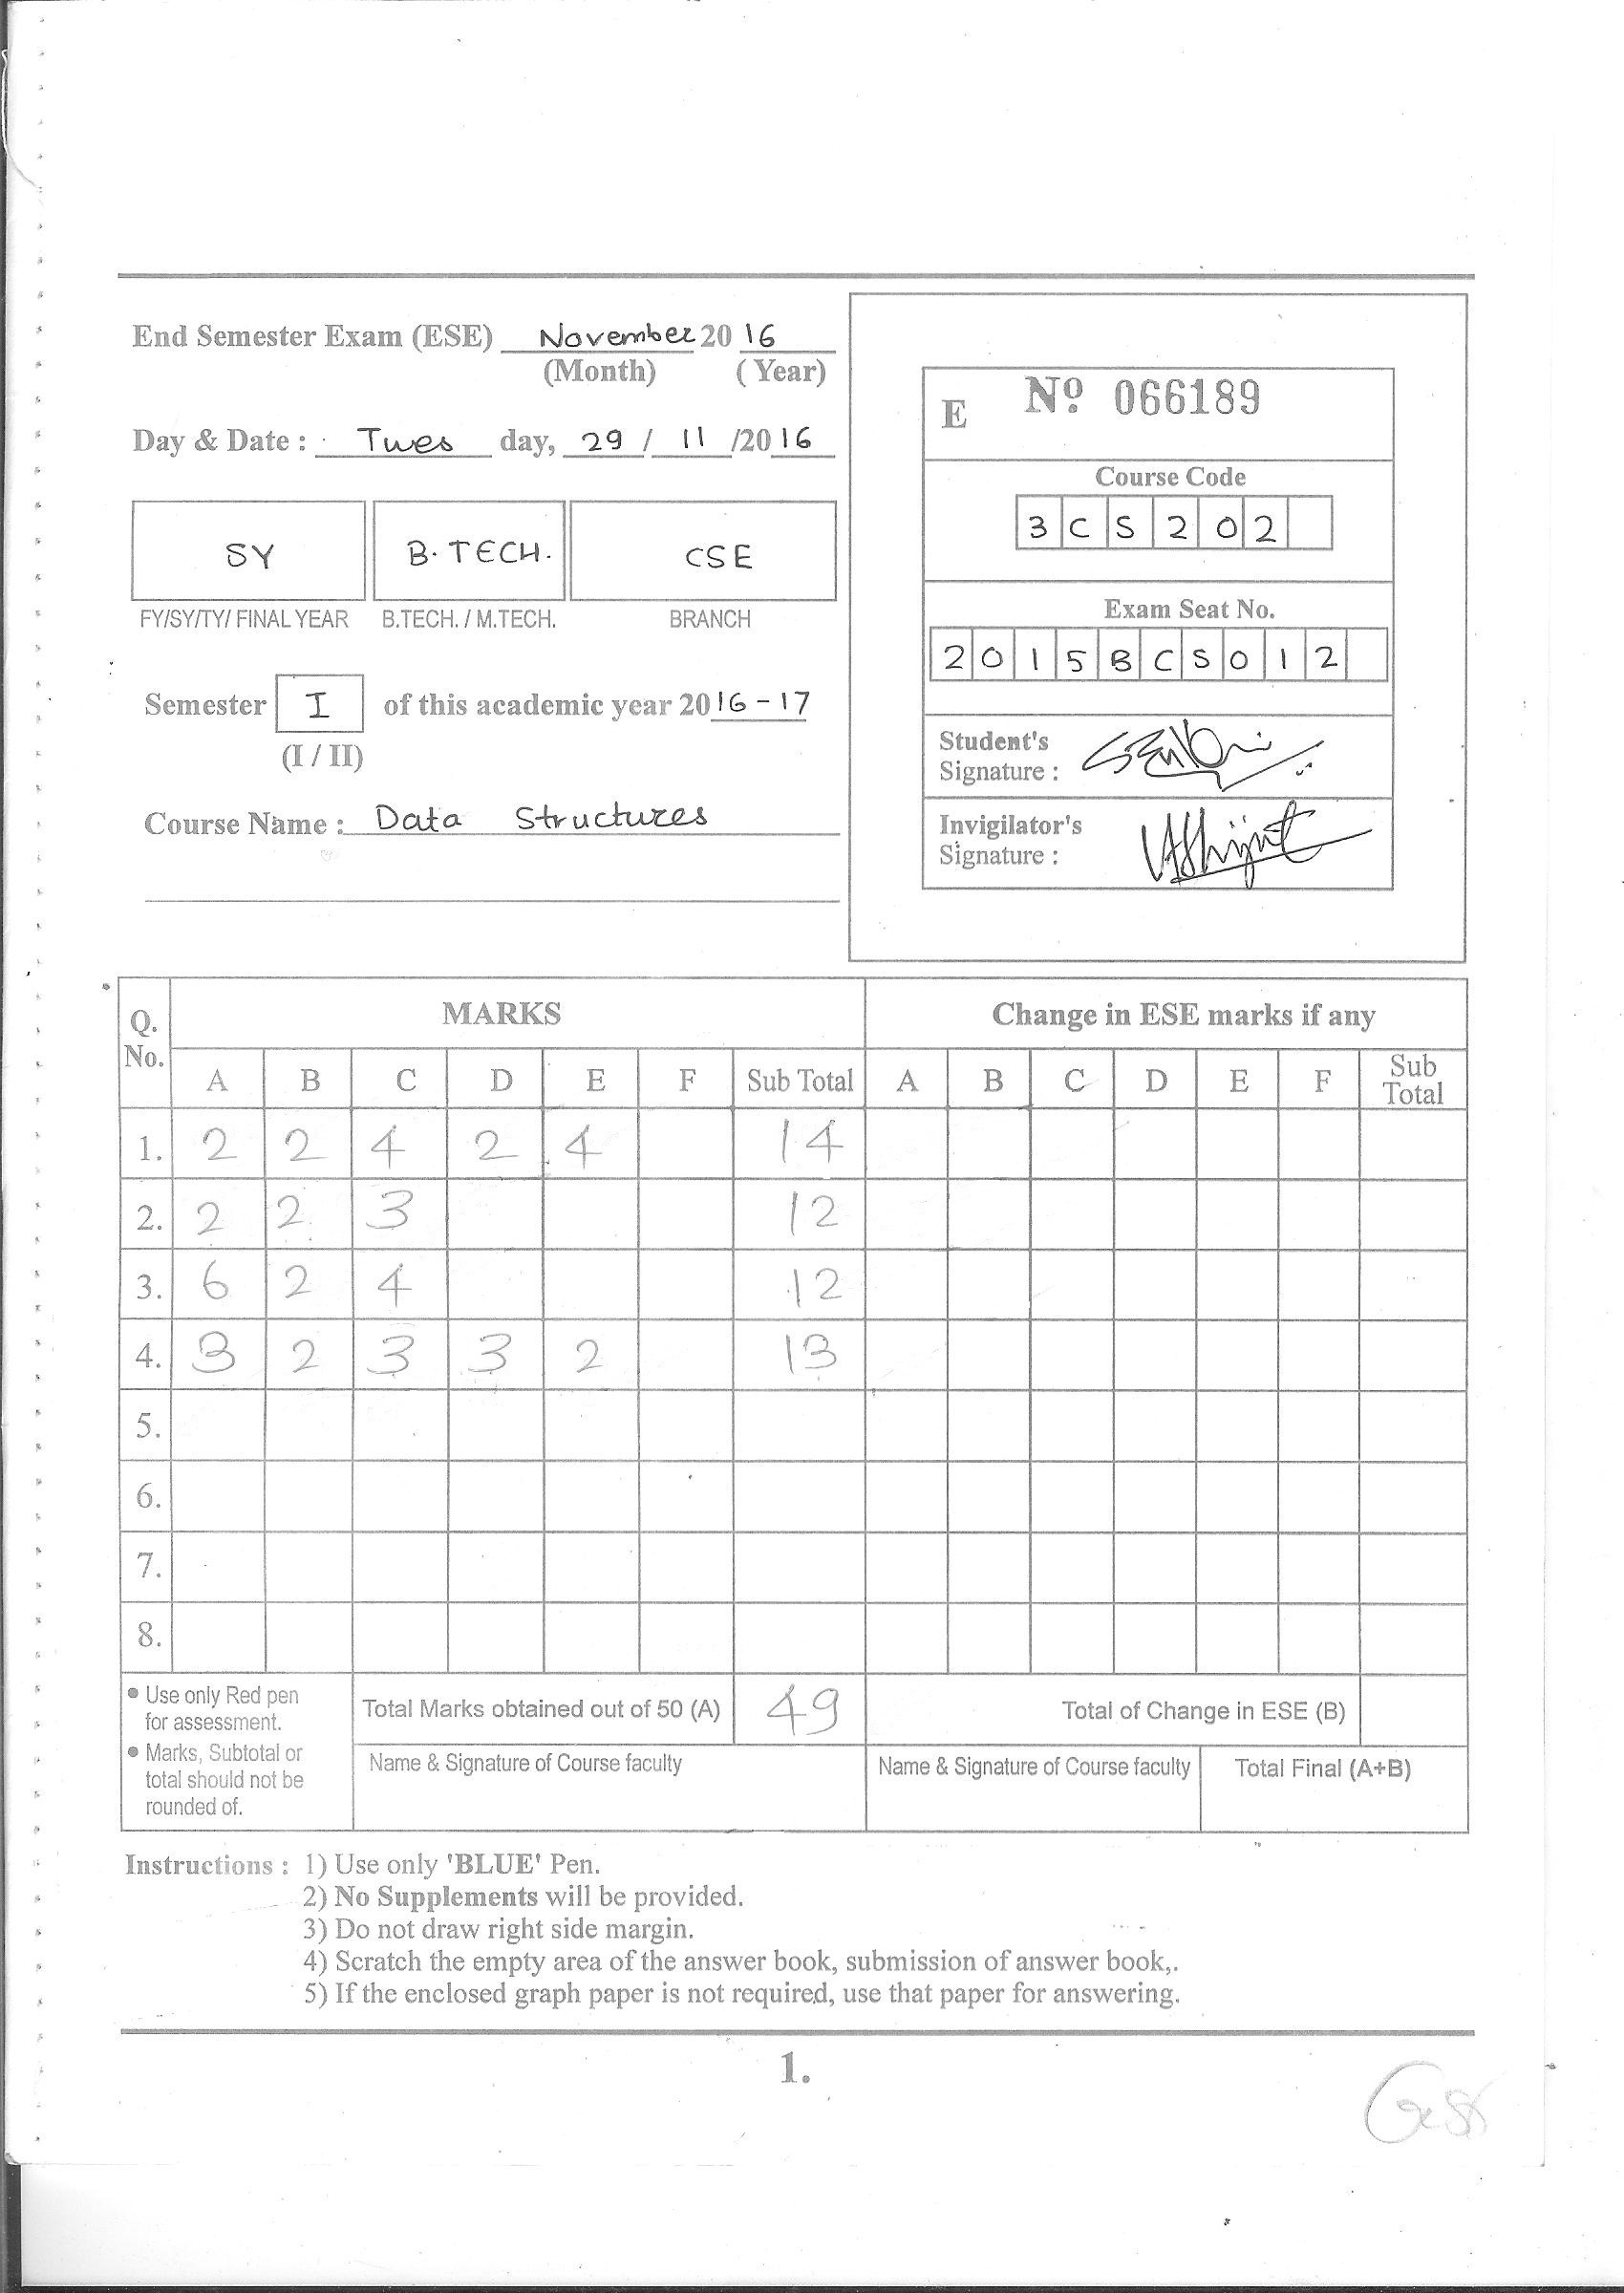 End Semester Exam (ESE) November 20 16
(Month) ( Year)
Day & Date : Tues day, 29 / 11 /20 16
SY B. TECH. CSE
FY/SY/TY/ FINAL YEAR B.TECH. / M.TECH. BRANCH
Semester I of this academic year 20 16 - 17
(I / II)
Course Name : Data Structures
E Nº 066189
Course Code
3 C S 2 0 2
Exam Seat No.
2 0 1 5 B C S 0 1 2
Student's
Signature :
Invigilator's
Signature :
Q. No. MARKS Change in ESE marks if any
A B C D E F Sub Total A B C D E F Sub Total
1. 2 2 4 2 4 14
2. 2 2 3 12
3. 6 2 4 12
4. 3 2 3 3 2 13
5.
6.
7.
8.
• Use only Red pen
for assessment.
• Marks, Subtotal or
total should not be
rounded of.
Total Marks obtained out of 50 (A) 49 Total of Change in ESE (B)
Name & Signature of Course faculty Name & Signature of Course faculty Total Final (A+B)
Instructions : 1) Use only 'BLUE' Pen.
2) No Supplements will be provided.
3) Do not draw right side margin.
4) Scratch the empty area of the answer book, submission of answer book,.
5) If the enclosed graph paper is not required, use that paper for answering.
1.